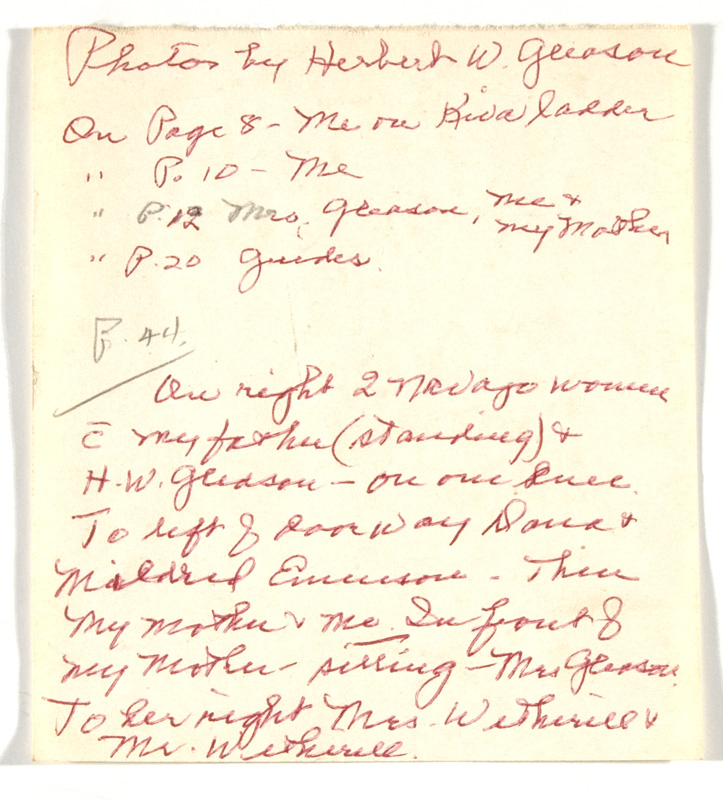 Photos by Herbert W. Gleason
On Page 8 - Me on Kiva ladder
" P. 10 - Me
" P. 12 Mrs. Gleason, me &
my Mother
" P. 20 Guides.
P. 44.
On right 2 Navajo women
c̄ my father (standing) &
H. W. Gleason - on one knee.
To left of doorway Dana &
Mildred Emerson - Then
My mother & me. In front of
my Mother - sitting - Mrs Gleason.
To her right Mrs. Witherill &
Mr. Witherill.